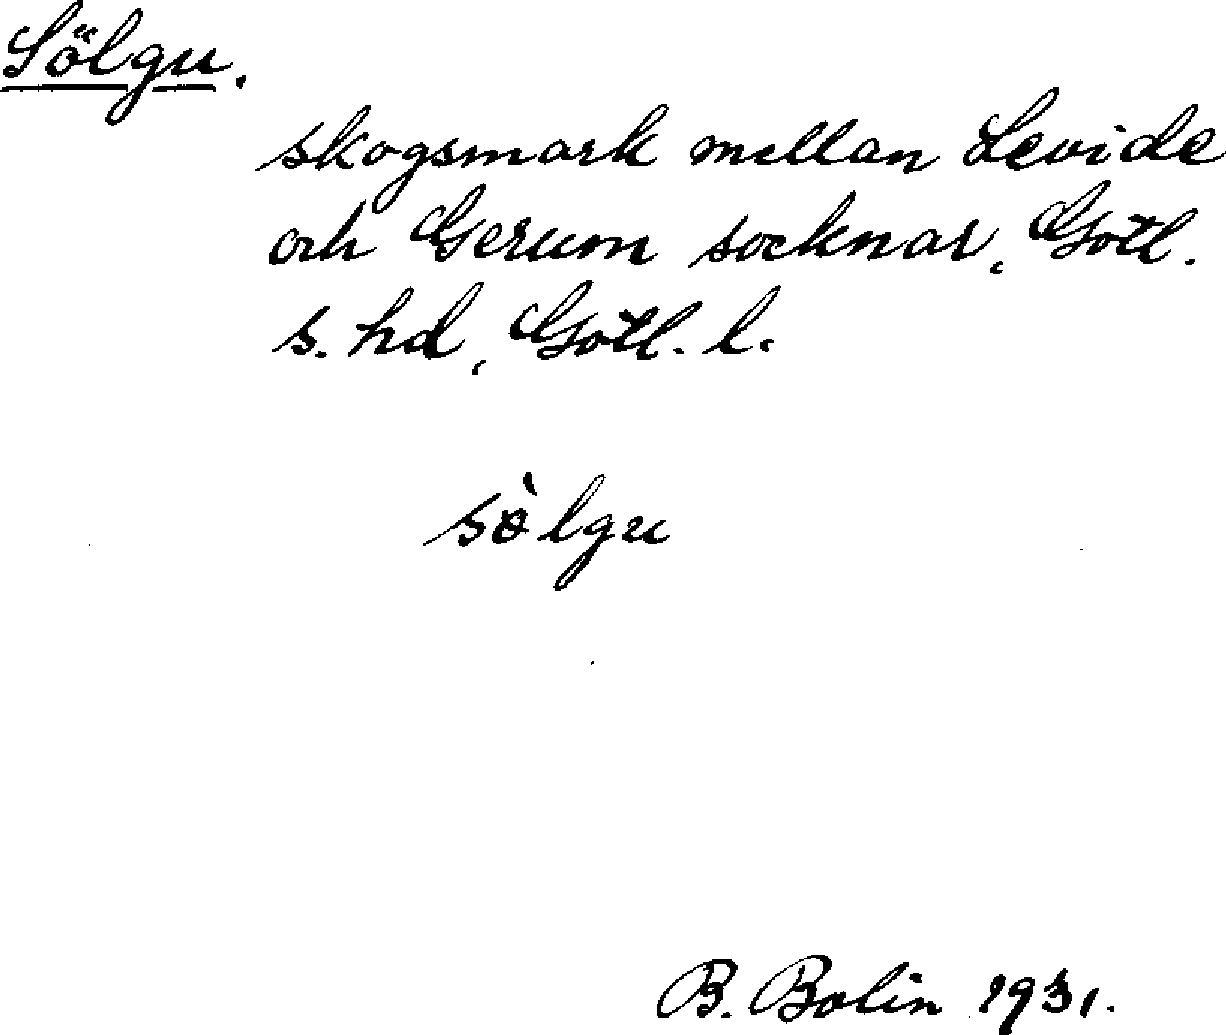 Sölgu.
skogsmark mellan Levide
och Gerum socknar, Gotl.
s. hd, Gotl. l.
sòlgu
B. Bolin 1931.